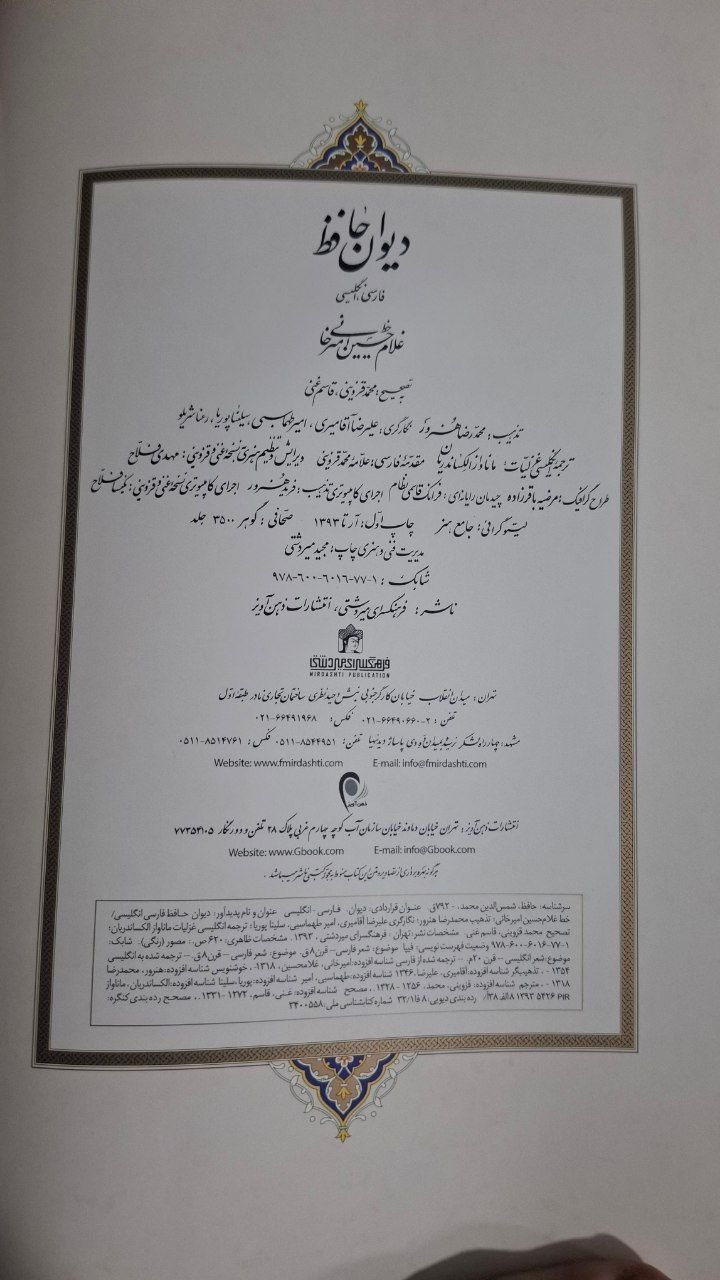 دیوان حافظ
فارسی، انگلیسی
خط
غلامحسین امیرخانی
به تصحیح: محمد قزوینی، قاسم غنی
تذهیب: محمدرضا هنرور نگارگری: علیرضا آقامیری، امیر طهماسبی، سیلنا پوریا، رعنا شریلو
ترجمه انگلیسی غزلیات: ماناواز الکساندریان مقدمه فارسی: علامه محمد قزوینی ویرایش و تنظیم نهری نسخه غنی و قزوینی: مهدی فلاح
طراح گرافیک: مرضیه باقرزاده چیدمان رایانه‌ای: فرانک قاسمی نظام اجرای کامپیوتری تذهیب: فرید هنرور اجرای کامپیوتری نسخه غنی و قزوینی: فلاح
لیتوگرافی: جامع هنر چاپ اول: آرتا ۱۳۹۳ صحافی: گوهر ۳۵۰۰ جلد
مدیریت فنی و هنری چاپ: مجید میردشتی
شابک: ۱-۷۷-۶۰۱۶-۶۰۰-۹۷۸
ناشر: فرهنگسرای میردشتی، انتشارات ذهن آویز
فرهنگسرای میردشتی
MIRDASHTI PUBLICATION
تهران: میدان انقلاب خیابان کارگر جنوبی نبش وحید نظری ساختمان تجاری نادر طبقه اول
تلفن: ۲-۶۶۴۹۰۶۶۰-۰۲۱ فکس: ۶۶۴۹۱۹۶۸-۰۲۱
مشهد: چهارراه لشکر نرسیده به میدان ده دی پاساژ دیدنیها تلفن: ۸۵۴۴۹۵۱-۰۵۱۱ فکس: ۸۵۱۴۷۶۱-۰۵۱۱
Website: www.fmirdashti.com E-mail: info@fmirdashti.com
ذهن آویز
انتشارات ذهن آویز: تهران خیابان دماوند خیابان سازمان آب کوچه چهارم غربی پلاک ۲۸ تلفن و دورنگار ۷۷۳۵۴۱۰۵
Website: www.Gbook.com E-mail: info@Gbook.com
هرگونه بهره‌برداری از تصاویر و متن این کتاب منوط به مجوز کتبی ناشر میباشد.
سرشناسه: حافظ، شمس‌الدین محمد، - ۷۹۲ق. عنوان قراردادی: دیوان. فارسی - انگلیسی عنوان و نام پدیدآور: دیوان حافظ فارسی انگلیسی/
خط غلامحسین امیرخانی؛ تذهیب محمدرضا هنرور؛ نگارگری علیرضا آقامیری، امیر طهماسبی، سلینا پوریا؛ ترجمه انگلیسی غزلیات ماناواز الکساندریان؛
تصحیح محمد قزوینی، قاسم غنی مشخصات نشر: تهران : فرهنگسرای میردشتی ، ۱۳۹۳. مشخصات ظاهری: ۶۲۰ ص.: مصور (رنگی). شابک:
۱-۷۷-۶۰۱۶-۶۰۰-۹۷۸ وضعیت فهرست نویسی: فیپا موضوع: شعر فارسی -- قرن ۸ق. موضوع: شعر فارسی -- قرن ۸ق. -- ترجمه شده به انگلیسی
موضوع: شعر انگلیسی -- قرن ۲۰م. -- ترجمه شده از فارسی شناسه افزوده: امیرخانی، غلامحسین، ۱۳۱۸ - ، خوشنویس شناسه افزوده: هنرور، محمدرضا
۱۳۵۴ - ، تذهیبگر شناسه افزوده: آقامیری، علیرضا، ۱۳۴۶ شناسه افزوده: طهماسبی، امیر شناسه افزوده: پوریا، سلینا شناسه افزوده: الکساندریان، ماناواز
۱۳۱۸ - ، مترجم شناسه افزوده: قزوینی، محمد، ۱۲۵۶ - ۱۳۲۸.، مصحح شناسه افزوده: غنی، قاسم، ۱۲۷۲ - ۱۳۳۱.، مصحح رده بندی کنگره:
PIR ۵۴۲۶ ۱۳۹۳ ۸الف۳۸/ رده بندی دیویی: ۸فا۳۲/۱ شماره کتابشناسی ملی: ۳۴۰۰۵۵۸